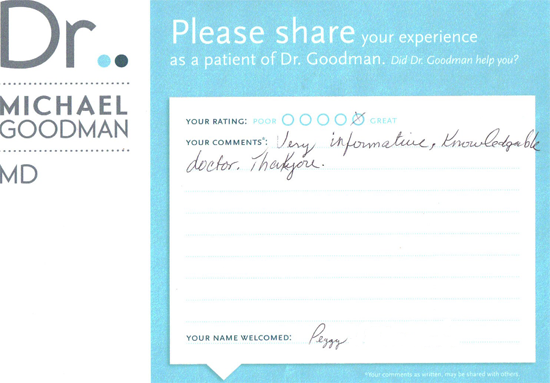 Dr..
MICHAEL
GOODMAN
MD
Please share your experience
as a patient of Dr. Goodman. Did Dr. Goodman help you?
YOUR RATING: POOR GREAT
YOUR COMMENTS*: Very informative, Knowledgable
doctor. Thankyou.
YOUR NAME WELCOMED: Peggy
*Your comments as written, may be shared with others.